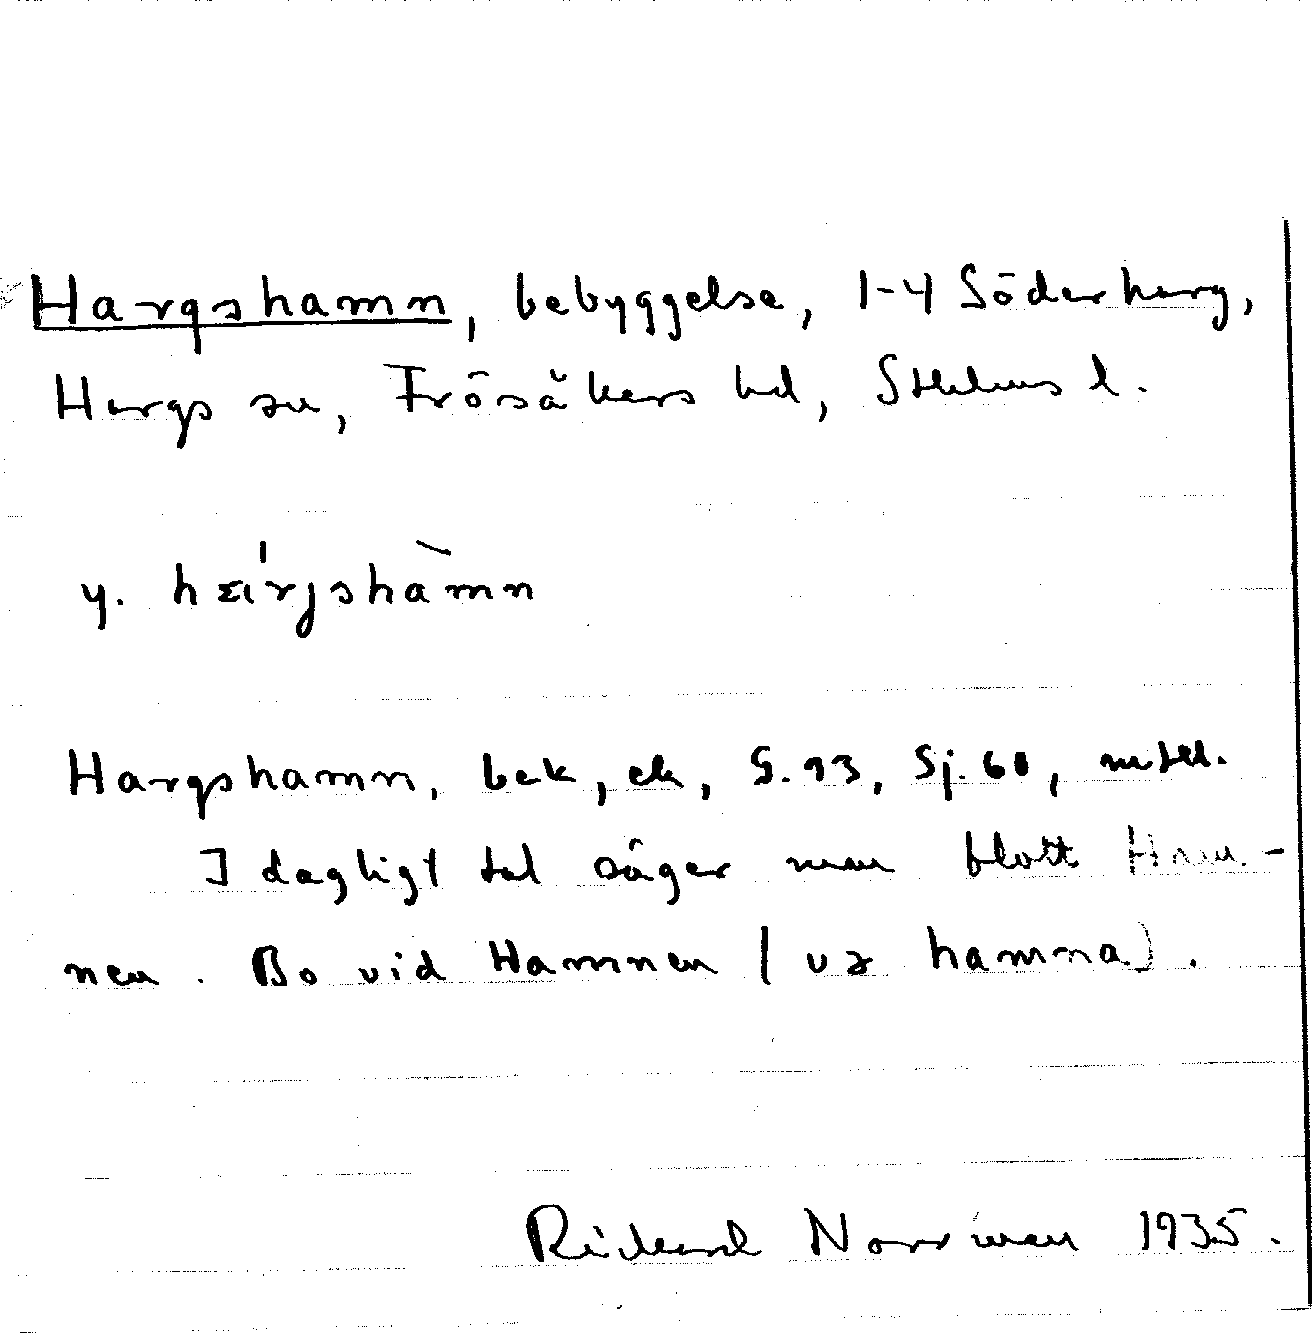 Hargshamn, bebyggelse, 1-4 Söderharg,
Hargs sn, Frösåkers hd, Sthlms l.
y. hɛ́rjshàmn
Hargshamn, bek, ek, G. 93, Sj. 60, mtbl.
I dagligt tal säger man blott Ham-
nen. Bo vid Hamnen (va hamna).
Rickard Norrman 1935.